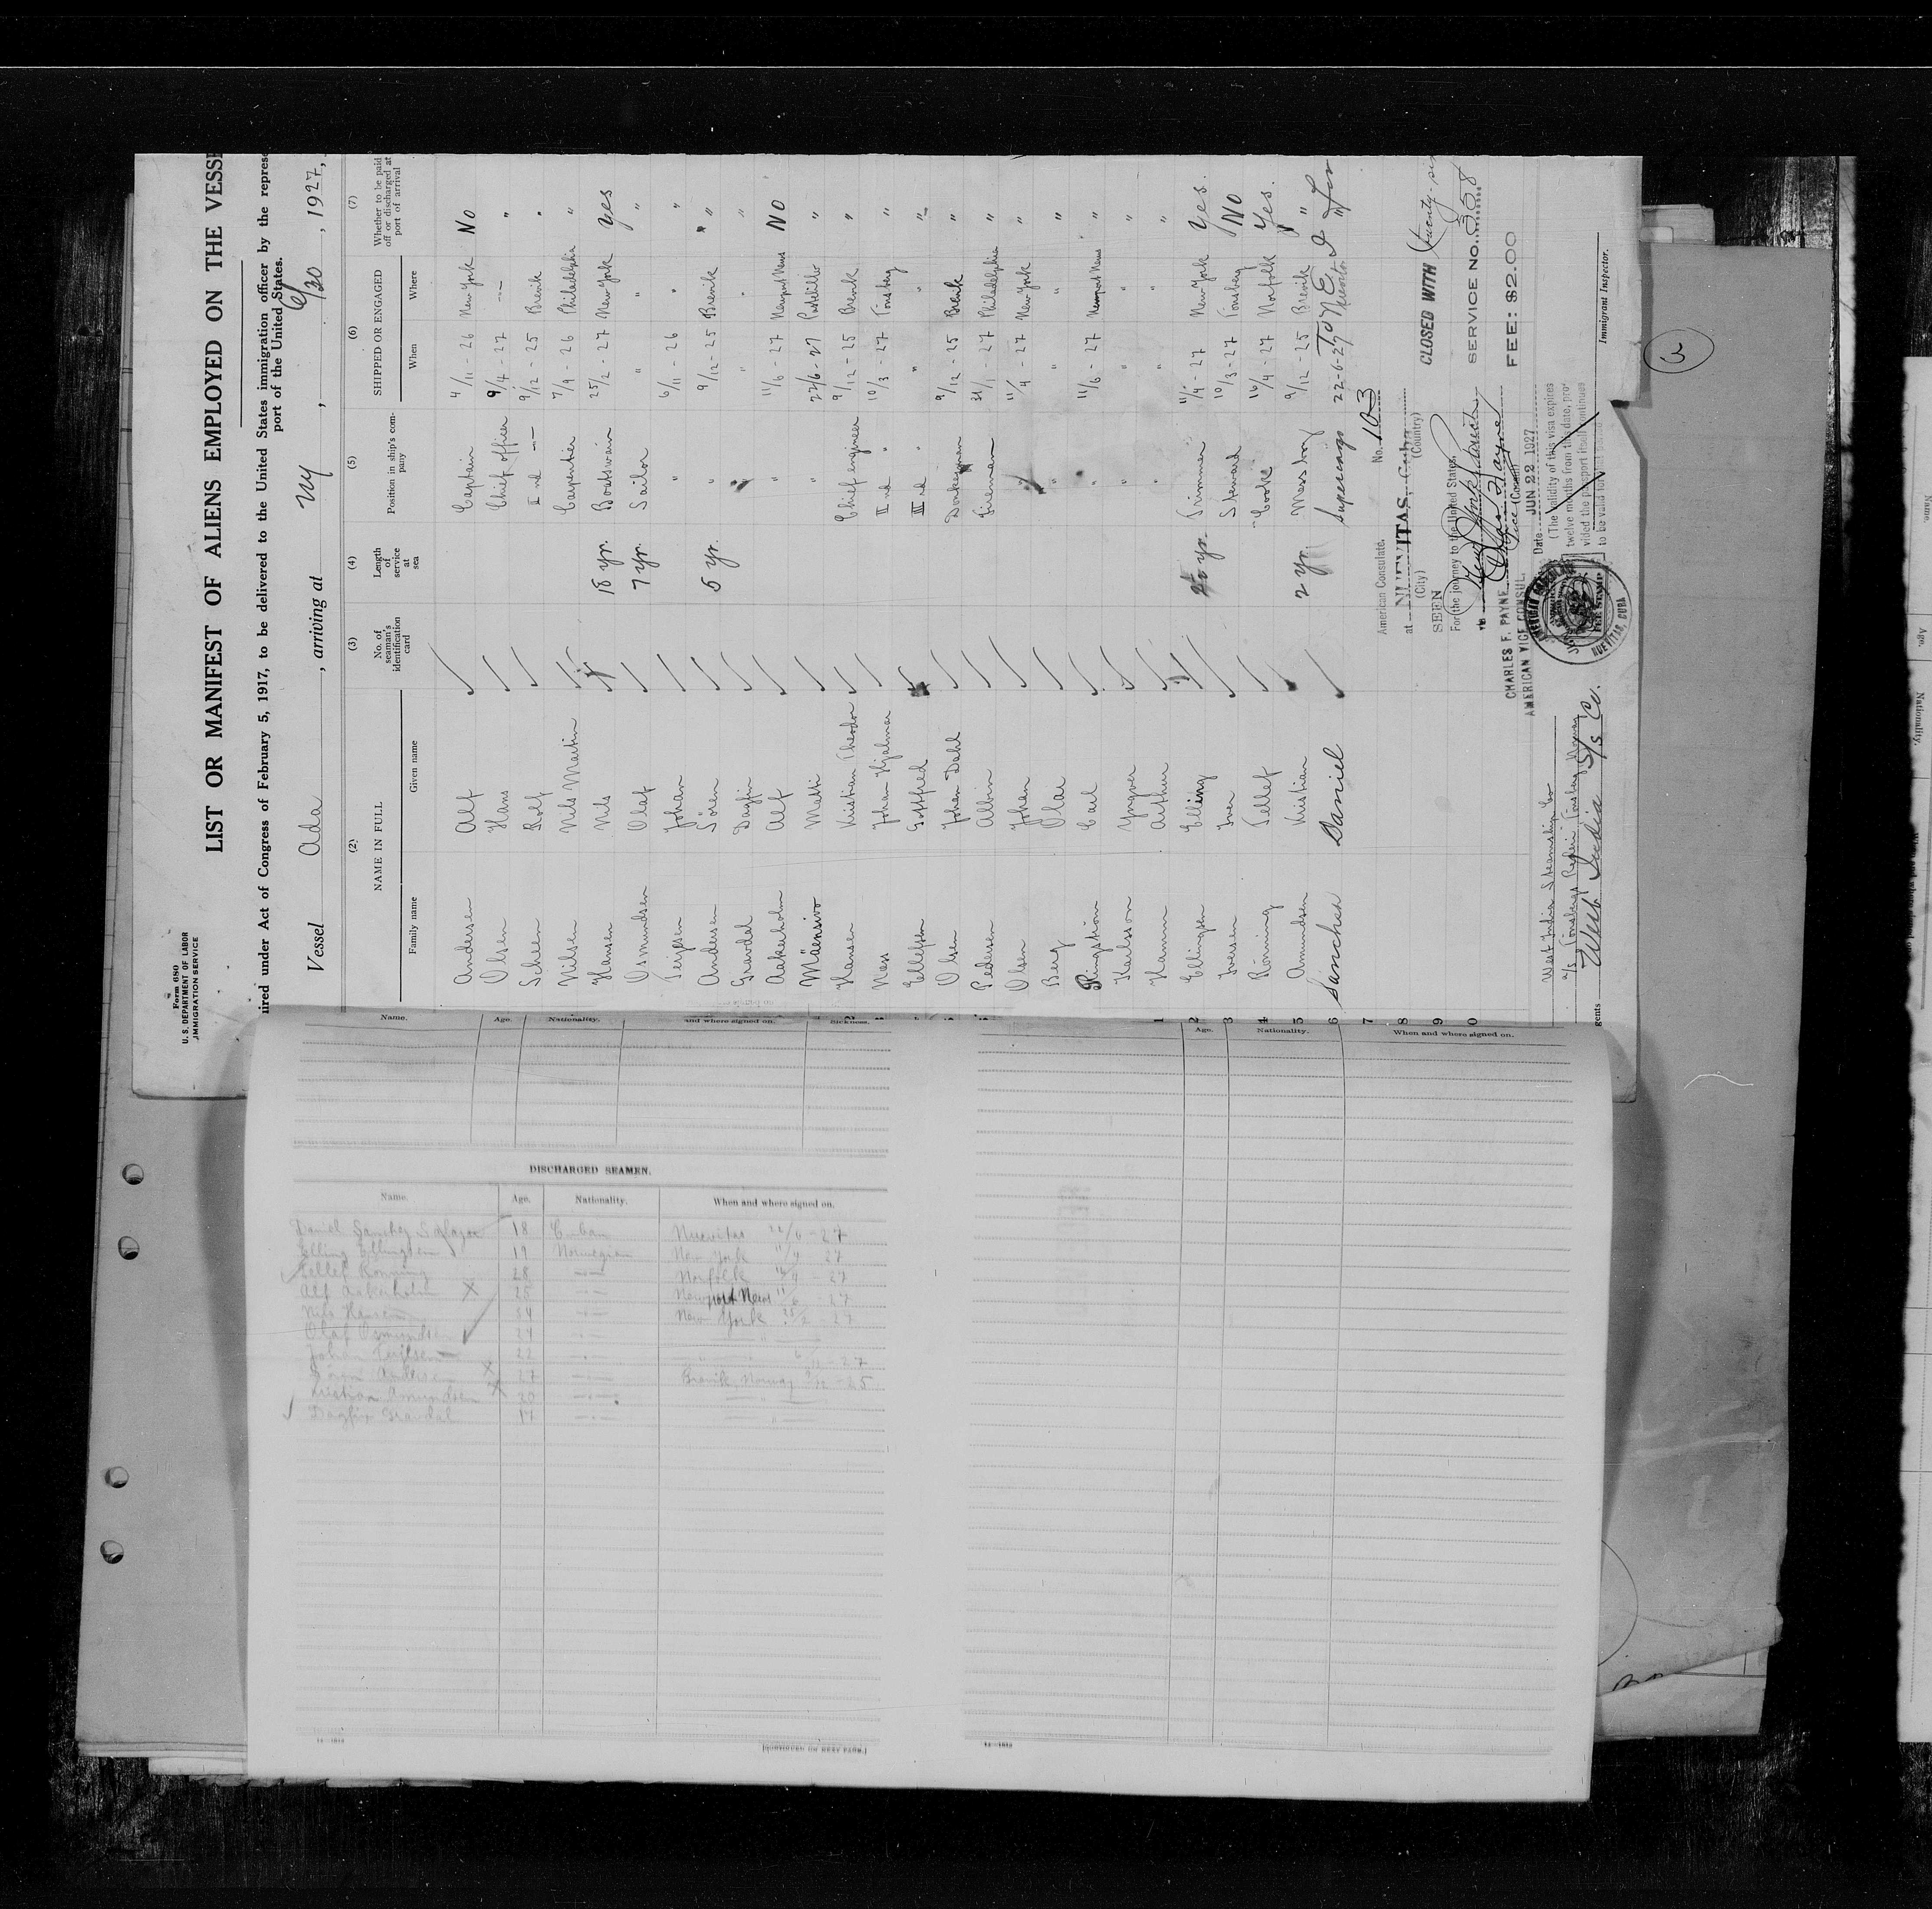 Form 680
U. S. DEPARTMENT OF LABOR
IMMIGRATION SERVICE
LIST OR MANIFEST OF ALIENS EMPLOYED ON THE VESSE
ired under Act of Congress of February 5, 1917, to be delivered to the United States immigration officer by the represe
port of the United States.
Vessel Ada, arriving at NY, 6/30, 1927,
(2) (3) (4) (5) (6) (7)
NAME IN FULL No. of seaman's identification card Length of service at sea Position in ship's company SHIPPED OR ENGAGED Whether to be paid off or discharged at port of arrival
Family name Given name When Where
Andersen Alf Captain 4/11 - 26 New York No
Olsen Hans Chief officer 9/4 - 27 -"- "
Scheen Rolf II nd -"- 9/12 - 25 Brevik "
Nilsen Nils Martin Carpentier 7/9 - 26 Philadelphia "
Hansen Nils 18 yr. Boatswain 25/2 - 27 New York Yes
Osmundsen Olaf 7 yr. Sailor " " "
Terjesen Johan " 6/11 - 26 " "
Andersen Sören 5 yr. " 9/12 - 25 Brevik "
Gravdal Dagfin " " " "
Aakerholm Alf " 11/6 - 27 Newport News NO
Mäensivo Matti " 22/6 - 27 "
Hansen Kristian Theodor Chief engineer 9/12 - 25 Brevik "
Næss Johan Hjalmar II nd " 10/3 - 27 Tönsberg "
Ellefsen Gottfred III rd " " " "
Olsen Johan Dahl Donkeyman 9/12 - 25 Brevik "
Pedersen Albin Fireman 31/1 - 27 Philadelphia "
Olsen Johan " 11/4 - 27 New York "
Berg Olav " " " "
Ringström Carl " 11/6 - 27 Newport News "
Karlsson Yngver " " " "
Hamm Arthur " " " "
1
2 Ellingsen Elling yr. Trimmer 11/4 - 27 New York Yes.
3 Iversen Iver Steward 10/3 - 27 Tönsberg NO
4 Rönning Tellef Cooke 16/4 - 27 Norfolk Yes.
5 Amundsen Kristian 2 yr. Messboy 9/12 - 25 Brevik "
6 Sanchez Daniel Supercargo 22-6-27 Nuevitas
7
8
9
0
American Consulate. No. 103
at NUEVITAS, Cuba
(City) (Country)
SEEN
For the journey to the United States,
CHARLES F. PAYNE
AMERICAN VICE CONSUL.
Vice (Consul)
Date JUN 22 1927
(The validity of this visa expires
twelve months from this date, pro-
vided the passport itself continues
to be valid for
AMERICAN CONSULAR
FEE STAMP
NUEVITAS, CUBA
CLOSED WITH twenty-six
SERVICE No. 358
FEE: $2.00
Immigrant Inspector.
West India Steamship Co
A/S Tönsbergs Rederi Tönsberg Norway
gents West India S/S Co.
Name. Age. Nationality. and where signed on. sickness.
DISCHARGED SEAMEN.
Name. Age. Nationality. When and where signed on.
Daniel Sanchez 18 Cuban Nuevitas 22/6 - 27
Elling Ellingsen 19 Norwegian New York 11/4 27
Tellef Rönning 28 -"- Norfolk 16/4 - 27
Alf Aakerholm X 25 -"- Newport News 11/6 - 27
Nils Hansen 34 -"- New York 25/2 - 27
Olaf Osmundsen 24 -"- "
Johan Terjesen 22 -"- 27
Sören Andersen X 27 -"- Brevik, Norway 9/12 - 25
Kristian Amundsen X 20 -"- "
Dagfin Gravdal 17 -"- "
[CONTINUED ON NEXT PAGE.]
Age. Nationality. When and where signed on.
Name.
Age.
Nationality.